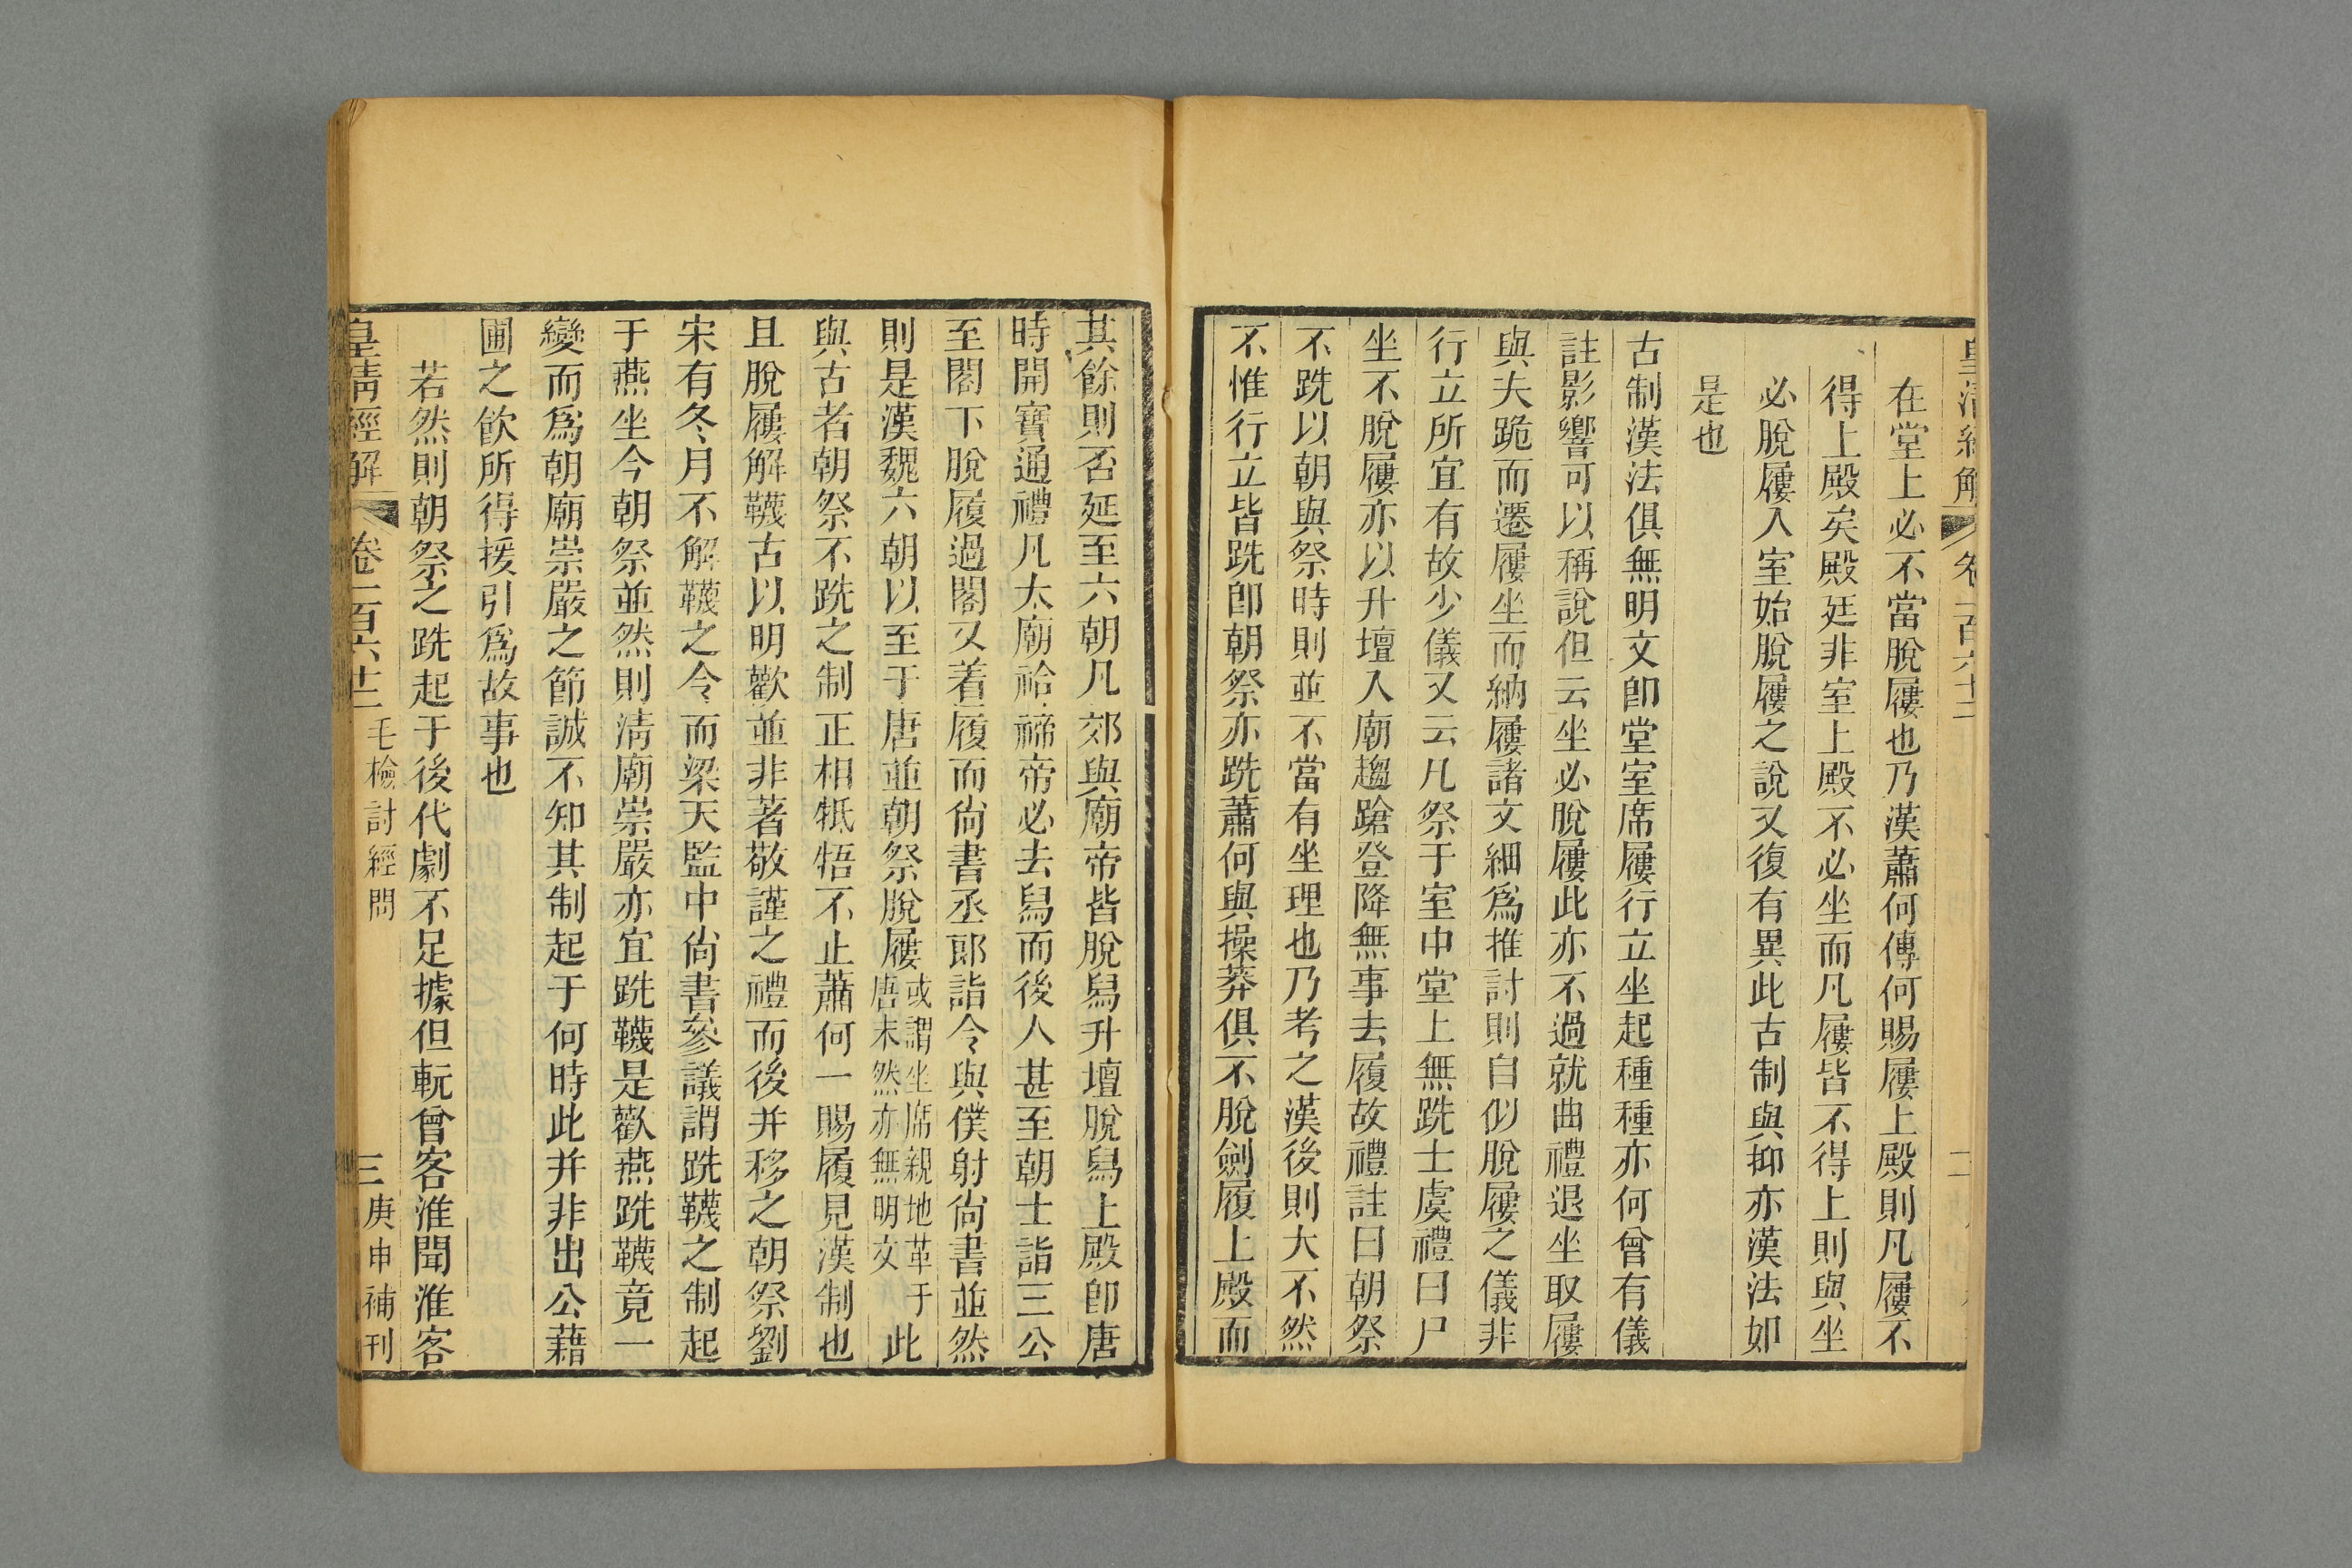 皇清經解 卷一百六十二 二
在堂上必不當脫屨也乃漢蕭何傳何賜屨上殿則凡屨不
得上殿矣殿廷非室上殿不必坐而凡屨皆不得上則與坐
必脫屨入室始脫屨之說又復有異此古制與抑亦漢法如
是也
古制漢法俱無明文卽堂室席屨行立坐起種種亦何曾有儀
註影響可以稱說但云坐必脫屨此亦不過就曲禮退坐取屨
與夫跪而遷屨坐而納屨諸文細爲推討則自似脫屨之儀非
行立所宜有故少儀又云凡祭于室中堂上無跣士虞禮曰尸
坐不脫屨亦以升壇入廟趨蹌登降無事去履故禮註曰朝祭
不跣以朝與祭時則並不當有坐理也乃考之漢後則大不然
不惟行立皆跣卽朝祭亦跣蕭何與操莽俱不脫劍履上殿而
其餘則否延至六朝凡郊與廟帝皆脫舄升壇脫舄上殿卽唐
時開寶通禮凡太廟祫禘帝必去舄而後入甚至朝士詣三公
至閤下脫履過閤又着履而尙書丞郞詣令與僕射尙書並然
則是漢魏六朝以至于唐並朝祭脫屨或謂坐席親地革于唐未然亦無明文此
與古者朝祭不跣之制正相牴牾不止蕭何一賜履見漢制也
且脫屨解韈古以明歡並非著敬謹之禮而後并移之朝祭劉
宋有冬月不解韈之令而梁天監中尙書參議謂跣韈之制起
于燕坐今朝祭並然則清廟崇嚴亦宜跣韈是歡燕跣韈竟一
變而爲朝廟崇嚴之節誠不知其制起于何時此并非出公藉
圃之飮所得援引爲故事也
若然則朝祭之跣起于後代劇不足據但輐曾客淮聞淮客
皇清經解 卷一百六十二 毛檢討經問 三 庚申補刊